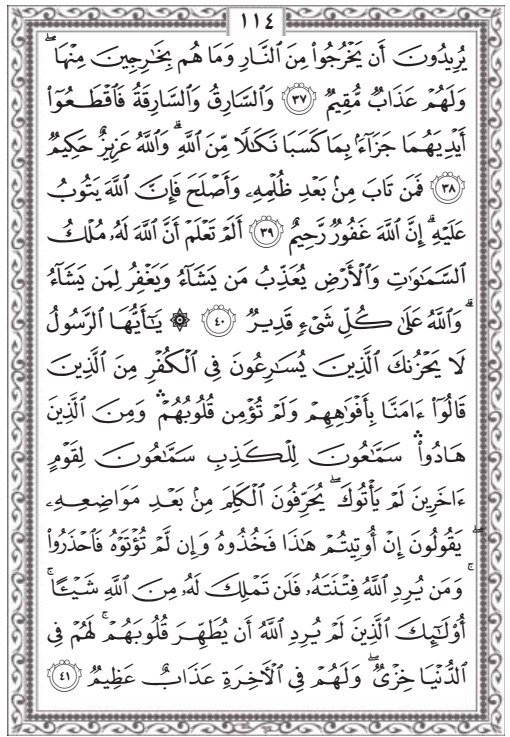 ١١٤
يُرِيدُونَ أَن يَخْرُجُوا۟ مِنَ ٱلنَّارِ وَمَا هُم بِخَٰرِجِينَ مِنْهَا ۖ
وَلَهُمْ عَذَابٌ مُّقِيمٌ ٣٧ وَٱلسَّارِقُ وَٱلسَّارِقَةُ فَٱقْطَعُوٓا۟
أَيْدِيَهُمَا جَزَآءًۢ بِمَا كَسَبَا نَكَٰلًا مِّنَ ٱللَّهِ ۗ وَٱللَّهُ عَزِيزٌ حَكِيمٌ
٣٨ فَمَن تَابَ مِنۢ بَعْدِ ظُلْمِهِۦ وَأَصْلَحَ فَإِنَّ ٱللَّهَ يَتُوبُ
عَلَيْهِ ۗ إِنَّ ٱللَّهَ غَفُورٌ رَّحِيمٌ ٣٩ أَلَمْ تَعْلَمْ أَنَّ ٱللَّهَ لَهُۥ مُلْكُ
ٱلسَّمَٰوَٰتِ وَٱلْأَرْضِ يُعَذِّبُ مَن يَشَآءُ وَيَغْفِرُ لِمَن يَشَآءُ
ۗ وَٱللَّهُ عَلَىٰ كُلِّ شَىْءٍ قَدِيرٌ ٤٠ ۞ يَٰٓأَيُّهَا ٱلرَّسُولُ
لَا يَحْزُنكَ ٱلَّذِينَ يُسَٰرِعُونَ فِى ٱلْكُفْرِ مِنَ ٱلَّذِينَ
قَالُوٓا۟ ءَامَنَّا بِأَفْوَٰهِهِمْ وَلَمْ تُؤْمِن قُلُوبُهُمْ ۛ وَمِنَ ٱلَّذِينَ
هَادُوا۟ ۛ سَمَّٰعُونَ لِلْكَذِبِ سَمَّٰعُونَ لِقَوْمٍ
ءَاخَرِينَ لَمْ يَأْتُوكَ ۖ يُحَرِّفُونَ ٱلْكَلِمَ مِنۢ بَعْدِ مَوَاضِعِهِۦ
ۖ يَقُولُونَ إِنْ أُوتِيتُمْ هَٰذَا فَخُذُوهُ وَإِن لَّمْ تُؤْتَوْهُ فَٱحْذَرُوا۟
ۚ وَمَن يُرِدِ ٱللَّهُ فِتْنَتَهُۥ فَلَن تَمْلِكَ لَهُۥ مِنَ ٱللَّهِ شَيْـًٔا ۚ
أُو۟لَٰٓئِكَ ٱلَّذِينَ لَمْ يُرِدِ ٱللَّهُ أَن يُطَهِّرَ قُلُوبَهُمْ ۚ لَهُمْ فِى
ٱلدُّنْيَا خِزْىٌ ۖ وَلَهُمْ فِى ٱلْءَاخِرَةِ عَذَابٌ عَظِيمٌ ٤١